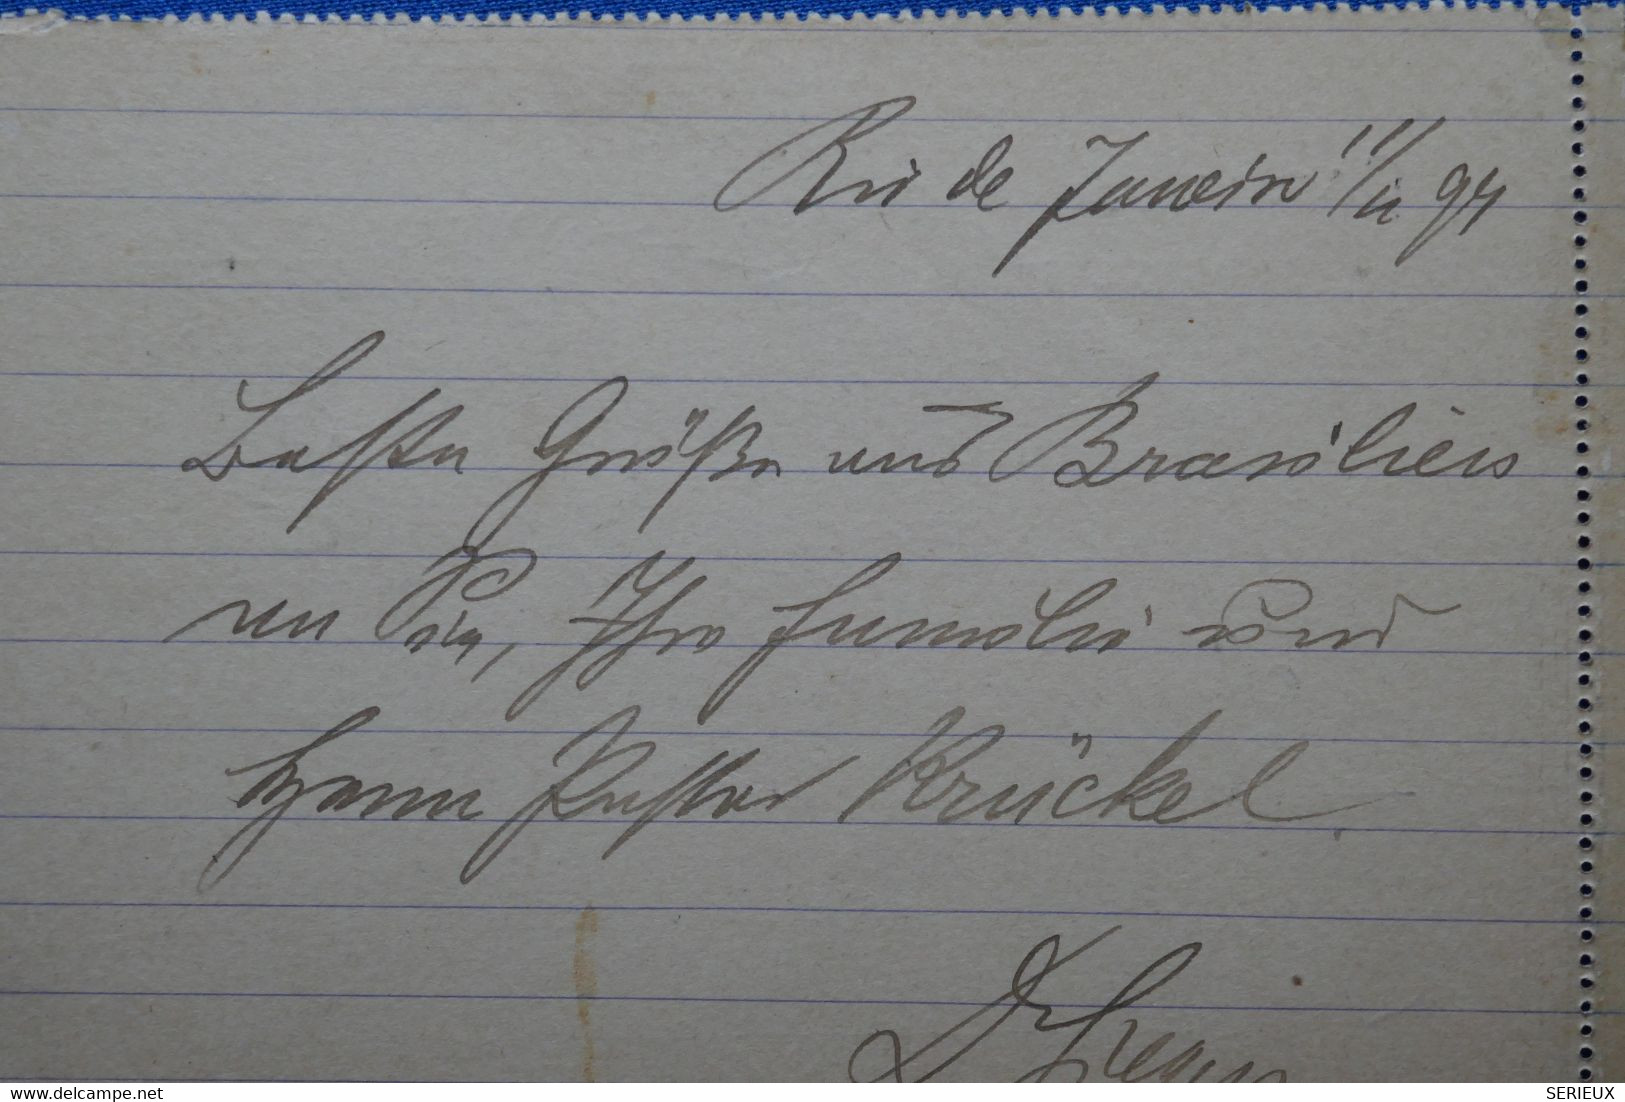 Rio de Janeiro 11/11 94
Beste Grüße aus Brasilien
an Sie, Ihre Familie und
Herrn Pastor Krückel.
www.delcampe.net
SERIEUX